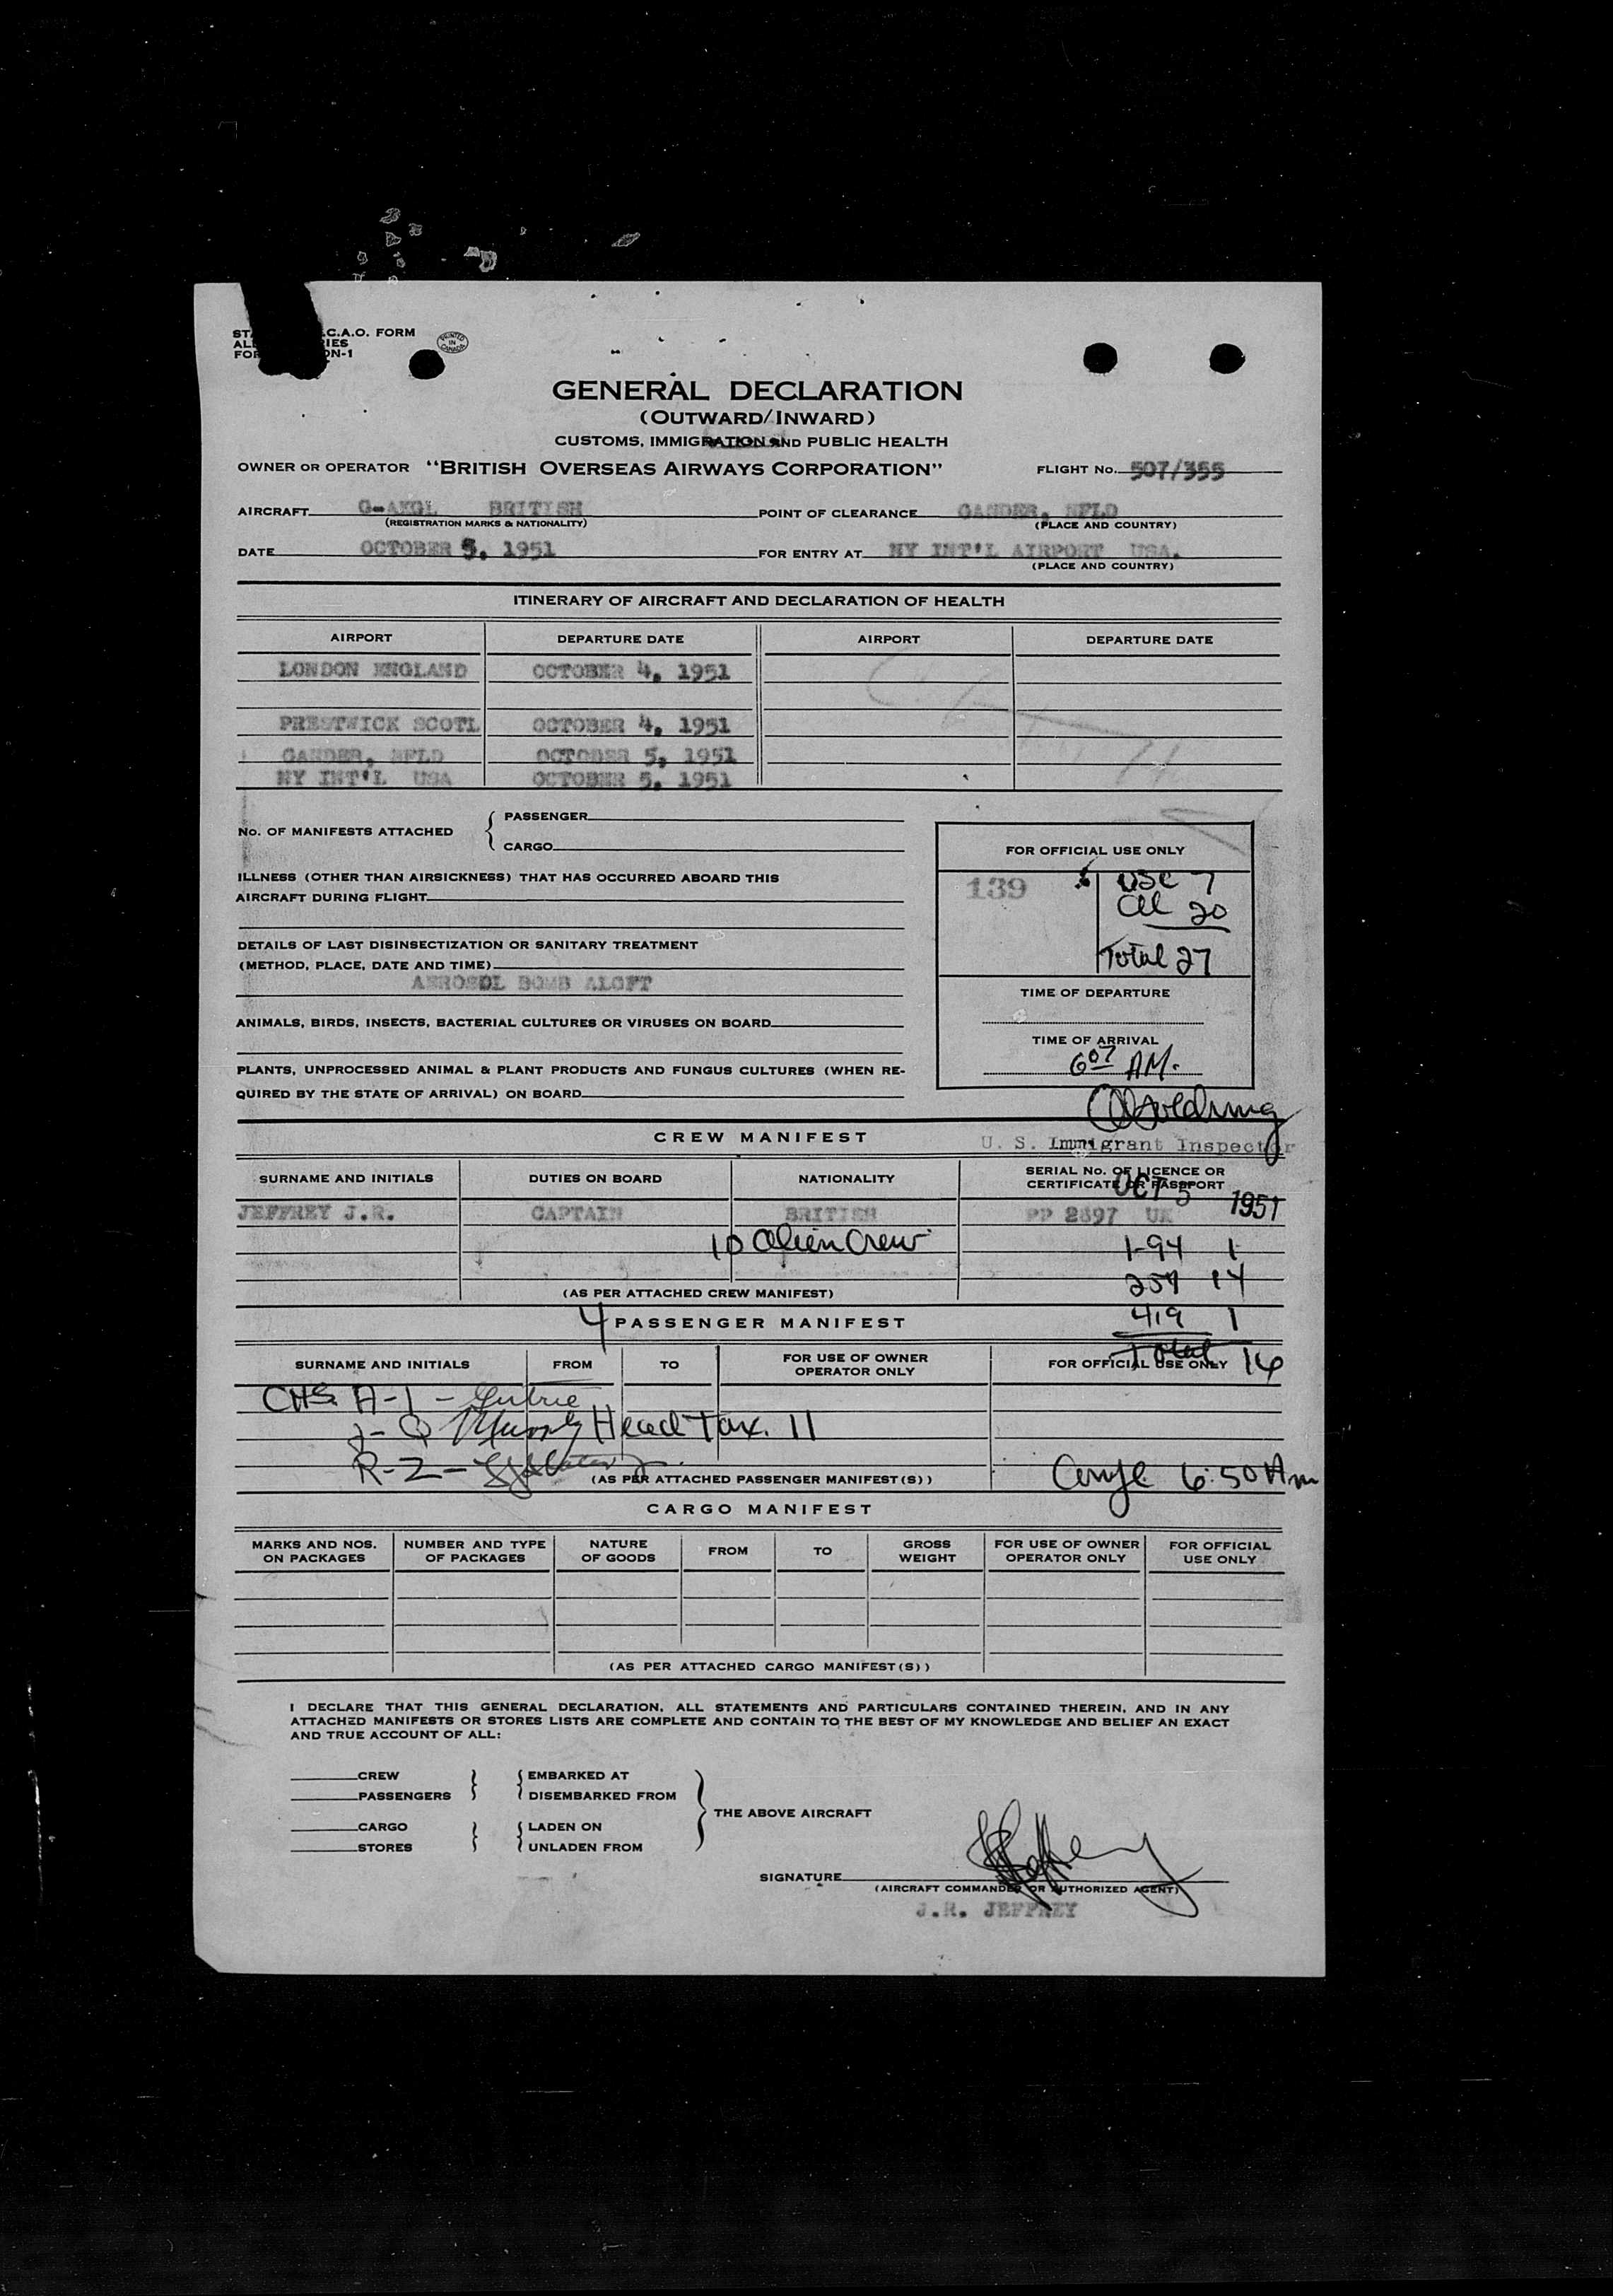 C.A.O. FORM
PRINTED IN CANADA
GENERAL DECLARATION
(OUTWARD/INWARD)
CUSTOMS, IMMIGRATION AND PUBLIC HEALTH
OWNER OR OPERATOR "BRITISH OVERSEAS AIRWAYS CORPORATION" FLIGHT No. 507/355
AIRCRAFT G-AKGL BRITISH POINT OF CLEARANCE GANDER, NFLD
(REGISTRATION MARKS & NATIONALITY) (PLACE AND COUNTRY)
DATE OCTOBER 5, 1951 FOR ENTRY AT NY INT'L AIRPORT USA.
(PLACE AND COUNTRY)
ITINERARY OF AIRCRAFT AND DECLARATION OF HEALTH
AIRPORT DEPARTURE DATE AIRPORT DEPARTURE DATE
LONDON ENGLAND OCTOBER 4, 1951
PRESTWICK SCOTL OCTOBER 4, 1951
GANDER, NFLD OCTOBER 5, 1951
NY INT'L USA OCTOBER 5, 1951
No. OF MANIFESTS ATTACHED PASSENGER
CARGO
FOR OFFICIAL USE ONLY
139 USC 7
20
Total 27
ILLNESS (OTHER THAN AIRSICKNESS) THAT HAS OCCURRED ABOARD THIS
AIRCRAFT DURING FLIGHT
DETAILS OF LAST DISINSECTIZATION OR SANITARY TREATMENT
(METHOD, PLACE, DATE AND TIME)
AEROSOL BOMB ALOFT
TIME OF DEPARTURE
ANIMALS, BIRDS, INSECTS, BACTERIAL CULTURES OR VIRUSES ON BOARD
TIME OF ARRIVAL
6 07 AM.
PLANTS, UNPROCESSED ANIMAL & PLANT PRODUCTS AND FUNGUS CULTURES (WHEN RE-
QUIRED BY THE STATE OF ARRIVAL) ON BOARD
CREW MANIFEST U. S. Immigrant Inspector
SURNAME AND INITIALS DUTIES ON BOARD NATIONALITY SERIAL No. OF LICENCE OR
CERTIFICATE OR PASSPORT
OCT 5 1951
JEFFREY J.R. CAPTAIN BRITISH PP 2897 UK
10 Alien Crew 1-94 1
257 14
(AS PER ATTACHED CREW MANIFEST)
4 PASSENGER MANIFEST 419 1
Total 16
SURNAME AND INITIALS FROM TO FOR USE OF OWNER
OPERATOR ONLY FOR OFFICIAL USE ONLY
A-1 -
Head Tax. 11
R-2 -
(AS PER ATTACHED PASSENGER MANIFEST(S)) 6:50 Am
CARGO MANIFEST
MARKS AND NOS.
ON PACKAGES NUMBER AND TYPE
OF PACKAGES NATURE
OF GOODS FROM TO GROSS
WEIGHT FOR USE OF OWNER
OPERATOR ONLY FOR OFFICIAL
USE ONLY
(AS PER ATTACHED CARGO MANIFEST(S))
I DECLARE THAT THIS GENERAL DECLARATION, ALL STATEMENTS AND PARTICULARS CONTAINED THEREIN, AND IN ANY
ATTACHED MANIFESTS OR STORES LISTS ARE COMPLETE AND CONTAIN TO THE BEST OF MY KNOWLEDGE AND BELIEF AN EXACT
AND TRUE ACCOUNT OF ALL:
CREW EMBARKED AT
PASSENGERS DISEMBARKED FROM
THE ABOVE AIRCRAFT
CARGO LADEN ON
STORES UNLADEN FROM
SIGNATURE
(AIRCRAFT COMMANDER OR AUTHORIZED AGENT)
J.R. JEFFREY